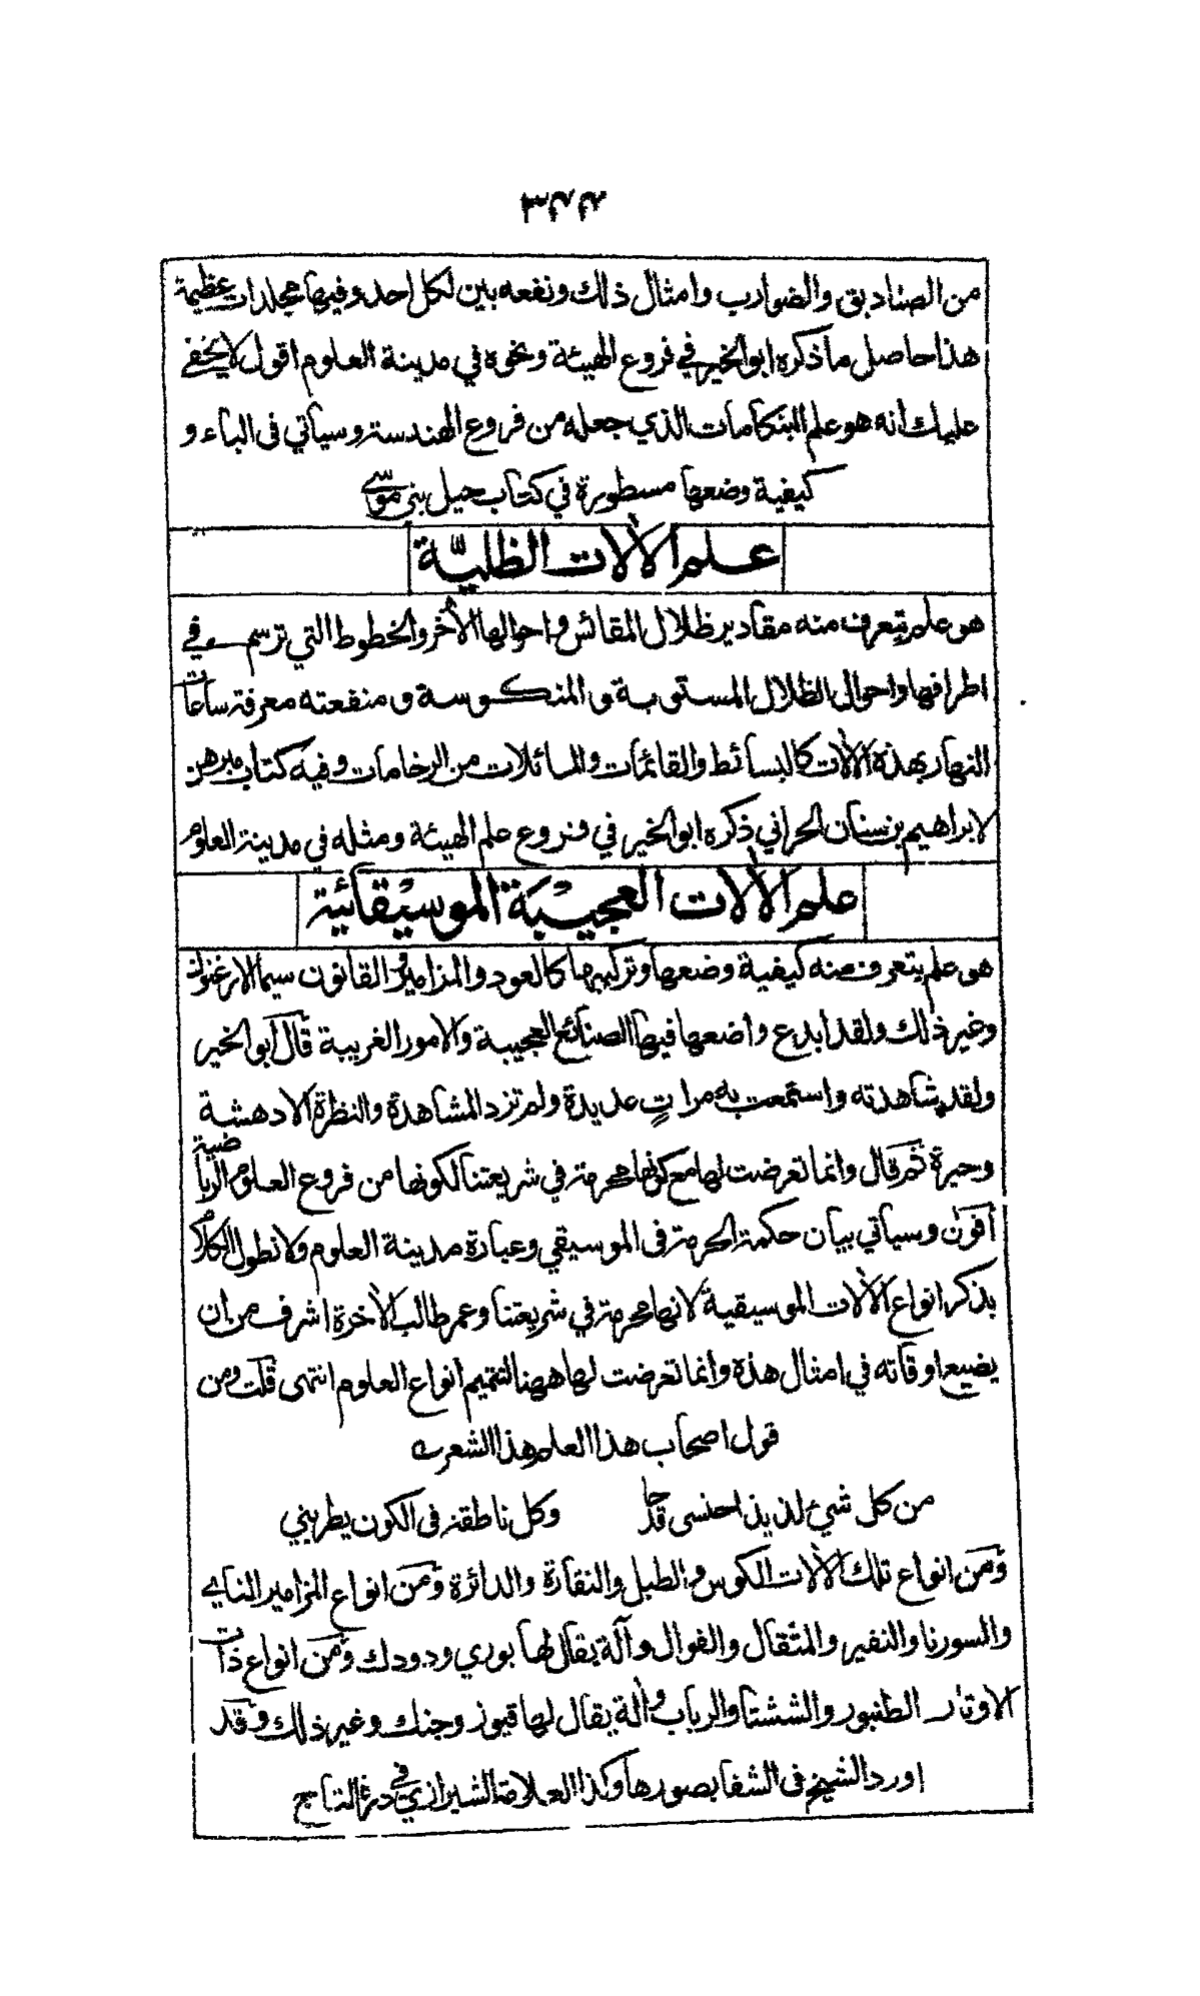 من الصناديق والضوارب وامثال ذلك ونفعه بين لكل احد وفيها مجلدات عظيمة
هذا حاصل ما ذكره ابو الخير في فروع الهيئة ونحوه في مدينة العلوم اقول لا يخفى
عليك انه هو علم البنكامات الذي جعله من فروع الهندسة وسيأتي في الباء و
كيفية وضعها مسطورة في كتاب حيل بني موسى
علم الآلات الظلية
هو علم يتعرف منه مقادير ظلال المقائس واحوالها الأخر والخطوط التي ترسم في
اطرافها واحوال الظلال المستوية والمنكوسة ومنفعته معرفة ساعات
النهار بهذه الآلات كالبسائط والقائمات والمائلات من الرخامات وفيه كتاب مبرهن
لابراهيم بن سنان الحراني ذكره ابو الخير في فروع علم الهيئة ومثله في مدينة العلوم
علم الآلات العجيبة الموسيقائية
هو علم يتعرف منه كيفية وضعها وتركيبها كالعود والمزامير والقانون سيما الارغنون
وغير ذلك ولقد ابدع واضعها فيها الصنائع العجيبة والامور الغريبة قال ابو الخير
ولقد شاهدته واستمعت به مرات عديدة ولم تزد المشاهدة والنظرة الا دهشة
وحيرة ثم قال وانما تعرضت لها مع كونها محرمة في شريعتنا لكونها من فروع العلوم الرياضية
أقول وسيأتي بيان حكمة الحرمة في الموسيقي وعبارة مدينة العلوم ولا نطول الكلام
بذكر انواع الآلات الموسيقية لانها محرمة في شريعتنا وعمر طالب الآخرة اشرف من ان
يضيع اوقاته في امثال هذه وانما تعرضت لها ههنا لتتميم انواع العلوم انتهى قلت ومن
قول اصحاب هذا العلم هذا الشعر
من كل شيء لذيذ احتسى قدحا وكل ناطقة في الكون يطربني
ومن انواع تلك الآلات الكوس والطبل والنقارة والدائرة ومن انواع المزامير الناي
والسورنا والنفير والمثقال والقوال وآلة يقال لها بوري ودودك ومن انواع ذات
الاوتار الطنبور والششتا والرباب وآلة يقال لها قبوز وجنك وغير ذلك وقد
اورد الشيخ في الشفا بصورها وكذا العلامة الشيرازي في درة التاج